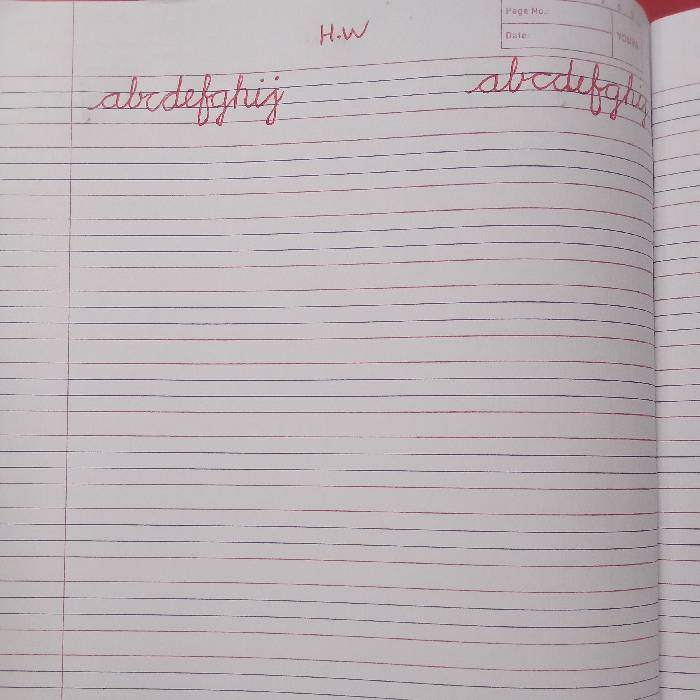 Page No.
H.W
Date
YOUVA
abcdefghij abcdefghij